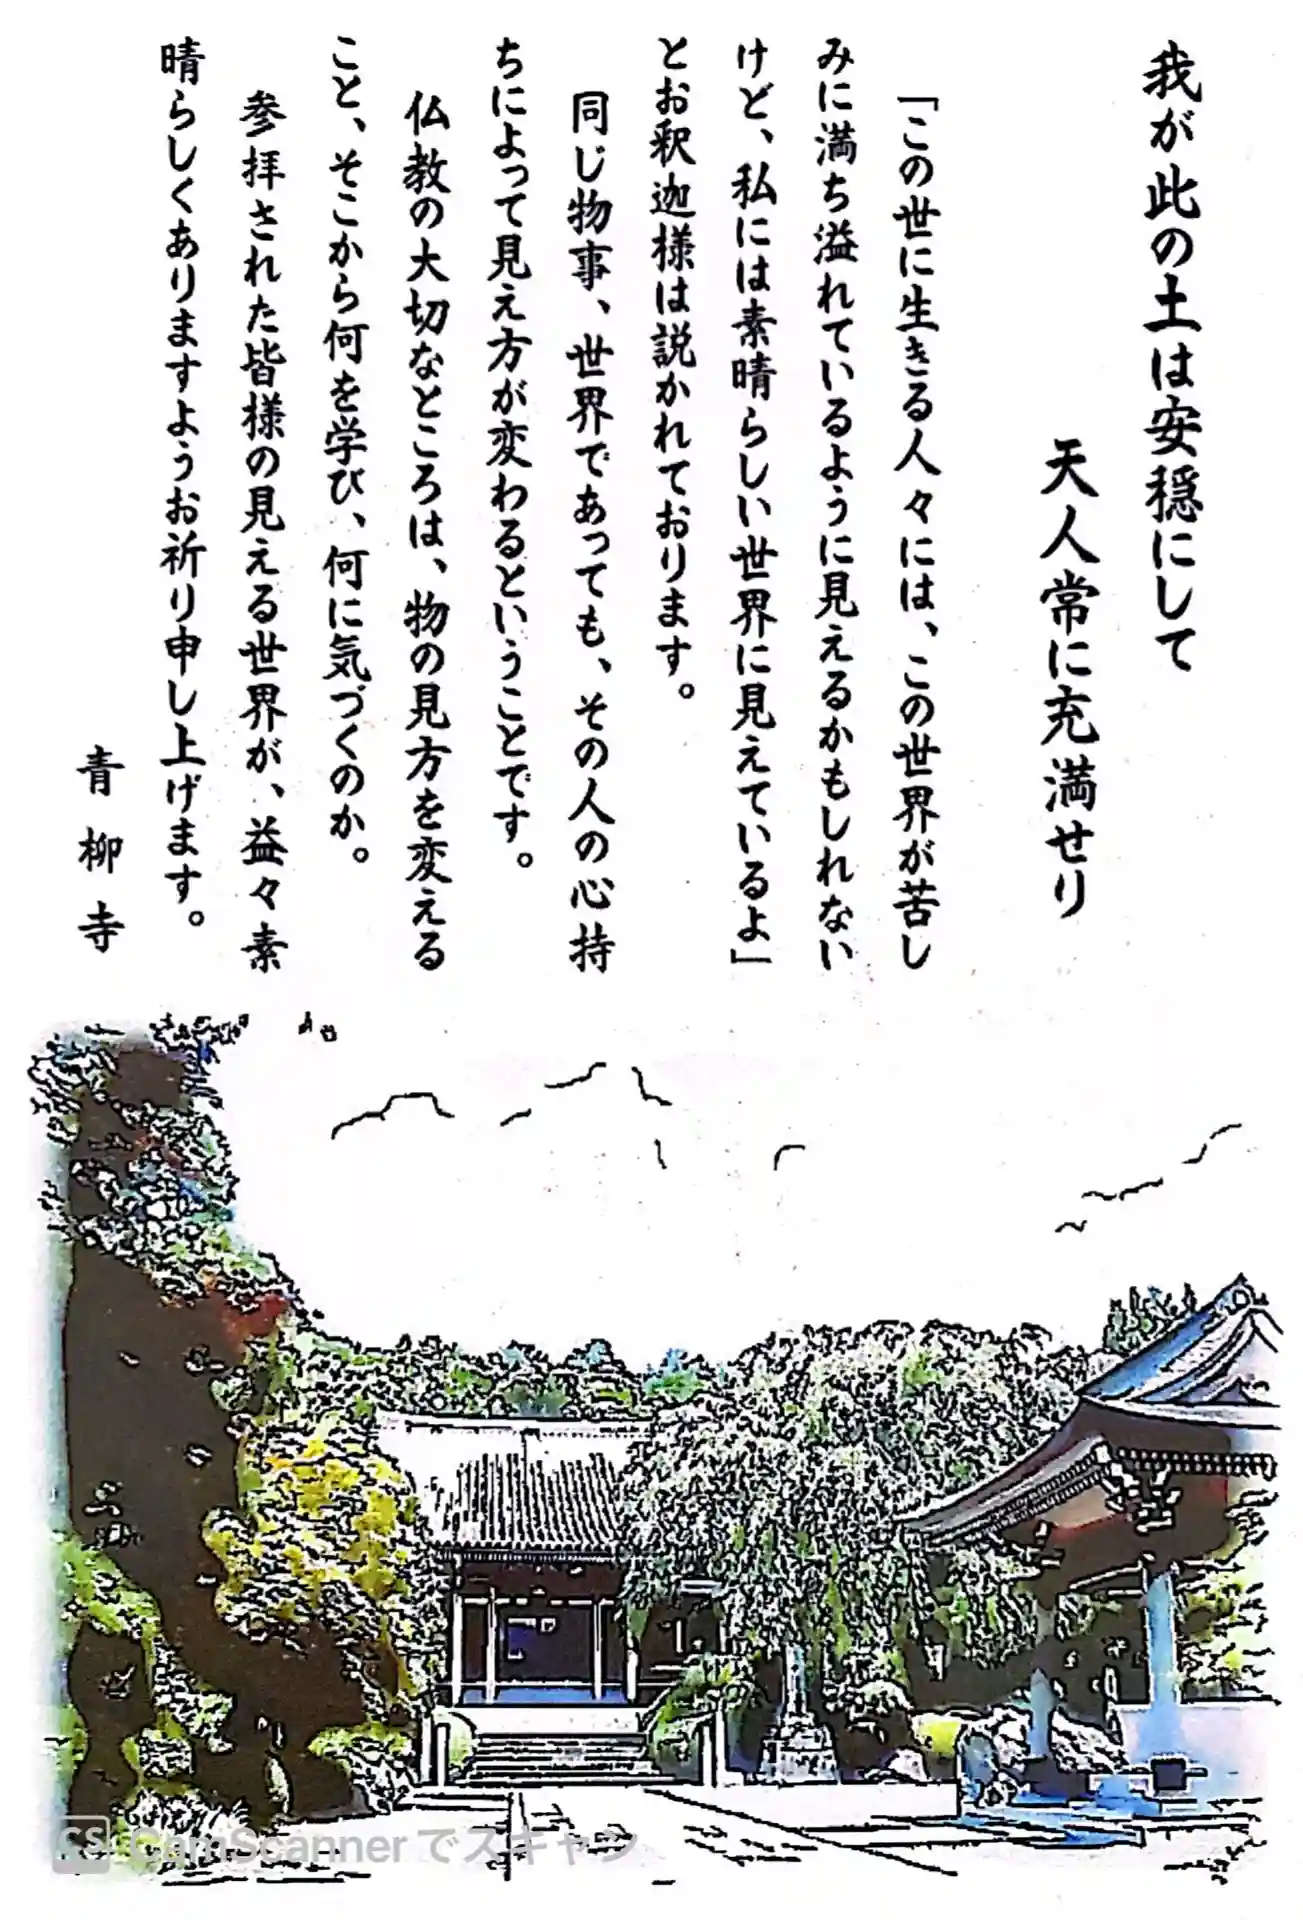 我が此の土は安穏にして
天人常に充満せり
「この世に生きる人々には、この世界が苦し
みに満ち溢れているように見えるかもしれない
けど、私には素晴らしい世界に見えているよ」
とお釈迦様は説かれております。
同じ物事、世界であっても、その人の心持
ちによって見え方が変わるということです。
仏教の大切なところは、物の見方を変える
こと、そこから何を学び、何に気づくのか。
参拝された皆様の見える世界が、益々素
晴らしくありますようお祈り申し上げます。
青柳寺
CS CamScannerでスキャン